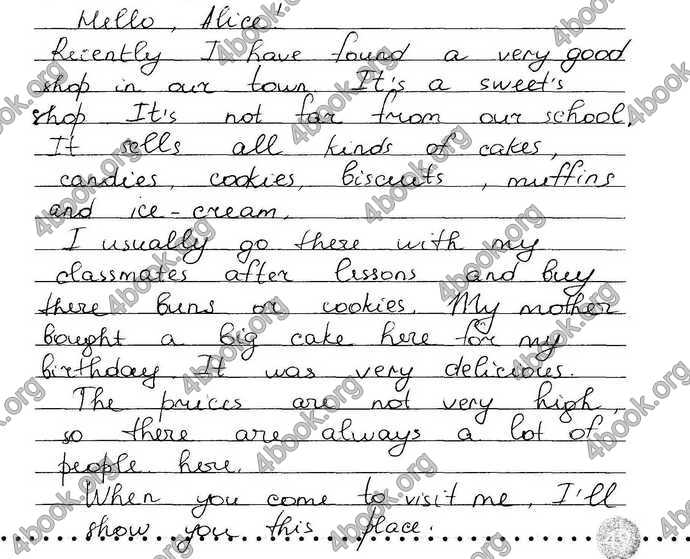 Hello, Alice!
Recently I have found a very good
shop in our town. It's a sweet's
shop It's not far from our school.
It sells all kinds of cakes,
candies, cookies, biscuits, muffins
and ice-cream.
I usually go there with my
classmates after lessons and buy
there buns or cookies. My mother
bought a big cake here for my
birthday. It was very delicious.
The prices are not very high,
so there are always a lot of
people here.
When you come to visit me, I'll
show you this place.
4book.org